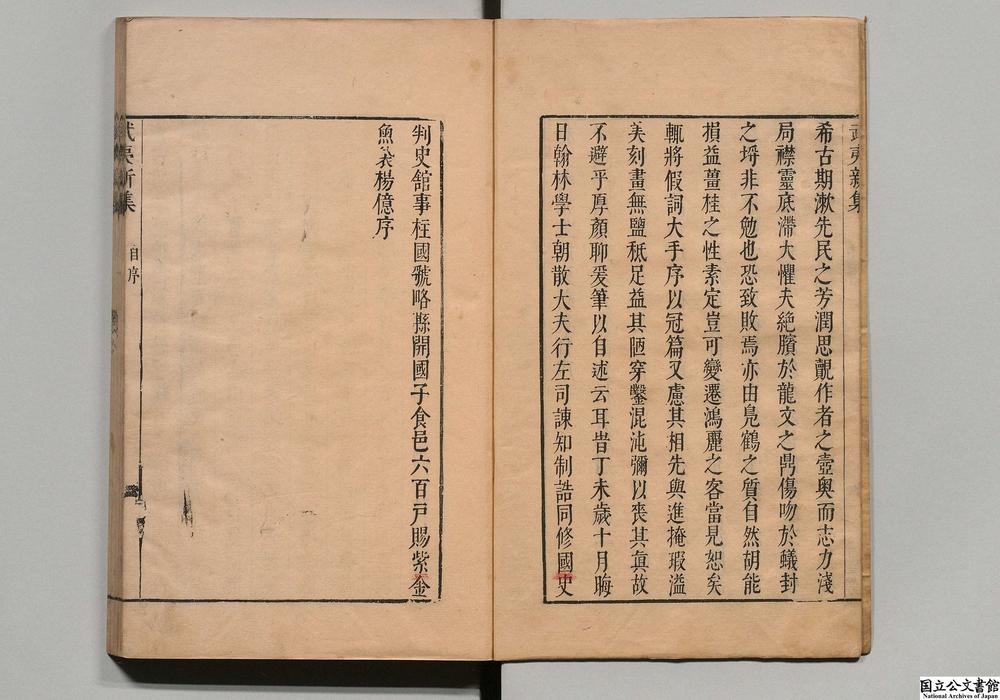 武夷新集
希古期漱先民之芳潤思覿作者之壼奧而志力淺
局襟靈底滯大懼夫絶臏於龍文之鼎傷吻於蟻封
之垤非不勉也恐致敗焉亦由鳧鶴之質自然胡能
損益薑桂之性素定豈可變遷鴻麗之客當見恕矣
輒將假詞大手序以冠篇又慮其相先與進掩瑕溢
美刻畫無鹽秪足益其陋穿鑿混沌彌以喪其眞故
不避乎厚顏聊爰筆以自述云耳昔丁未歲十月晦
日翰林學士朝散大夫行左司諫知制誥同修國史
判史舘事柱國虢略縣開國子食邑六百戸賜紫金
魚袋楊億序
武夷新集
自序
国立公文書館
National Archives of Japan